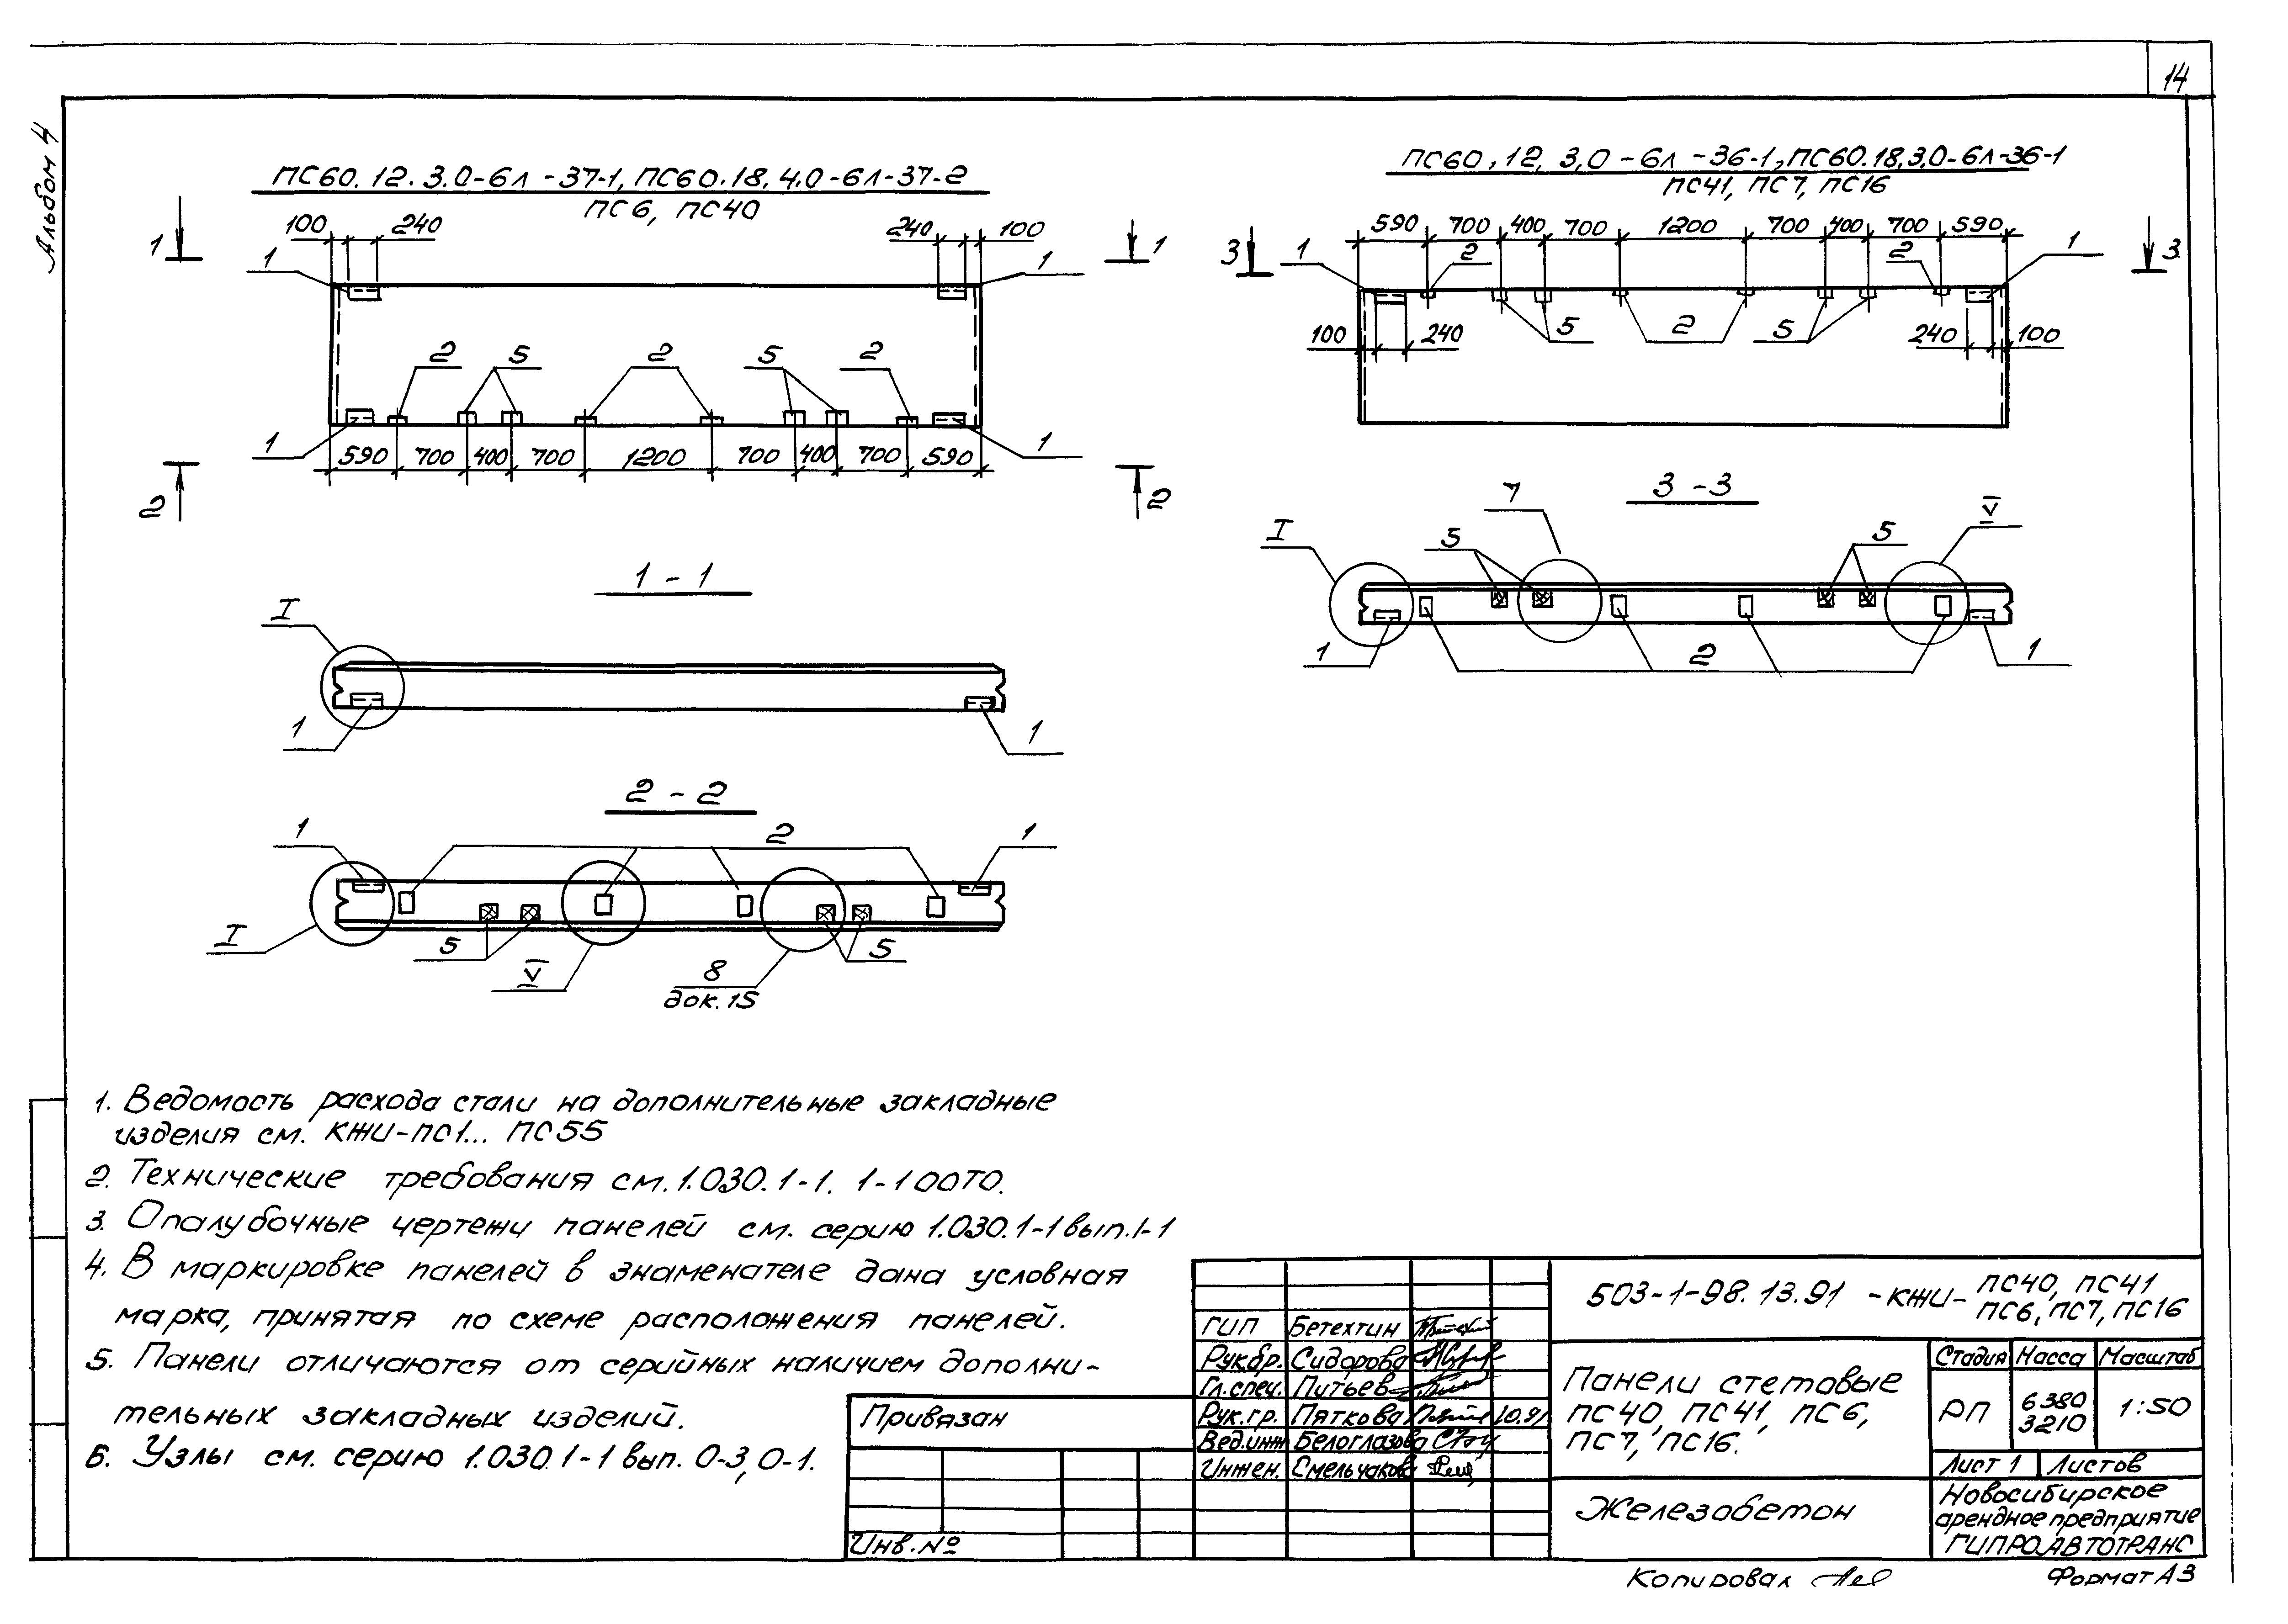 14
Альбом 4
ПС60.12.3.0-6л -37-1, ПС60.18.4.0-6л-37-2
ПС6, ПС40
100 240 240 100
1 1
1 1
2 5 2 5 2
1 1
590 700 400 700 1200 700 400 700 590
2 2
ПС60.12.3,0-6л -36-1, ПС60.18.3,0-6л-36-1
ПС41, ПС7, ПС16
590 700 400 700 1200 700 400 700 590
3 1 2 2 1 3
100 240 5 2 5 240 100
3 - 3
I 7 5 5 V
1 2 1
1 - 1
I
1 1
2 - 2
1 2 1
I 5 V 8 5
док. 15
1. Ведомость расхода стали на дополнительные закладные
изделия см. КЖИ-ПС1... ПС55
2. Технические требования см. 1.030.1-1. 1-1 00ТО.
3. Опалубочные чертежи панелей см. серию 1.030.1-1 вып.1-1
4. В маркировке панелей в знаменателе дана условная
марка, принятая по схеме расположения панелей.
5. Панели отличаются от серийных наличием дополни-
тельных закладных изделий.
6. Узлы см. серию 1.030.1-1 вып. 0-3, 0-1.
Привязан
Инв.№
ГИП Бетехтин
Рук.бр. Сидорова
Гл.спец. Питьев
Рук.гр. Пяткова 10.91
Вед.инж Белоглазова
Инжен. Емельчакова
503-1-98.13.91 -КЖИ- ПС40, ПС41
ПС6, ПС7, ПС16
Панели стетовые
ПС40, ПС41, ПС6,
ПС7, ПС16.
Стадия Масса Масштаб
РП 6380 1:50
3210
Лист 1 Листов
Железобетон
Новосибирское
арендное предприятие
ГИПРОАВТОТРАНС
Копировал
Формат А3